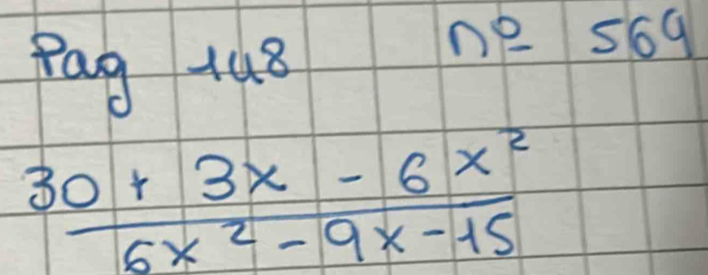 Pag 148 nº 569
30 + 3x - 6x²
6x² - 9x - 15